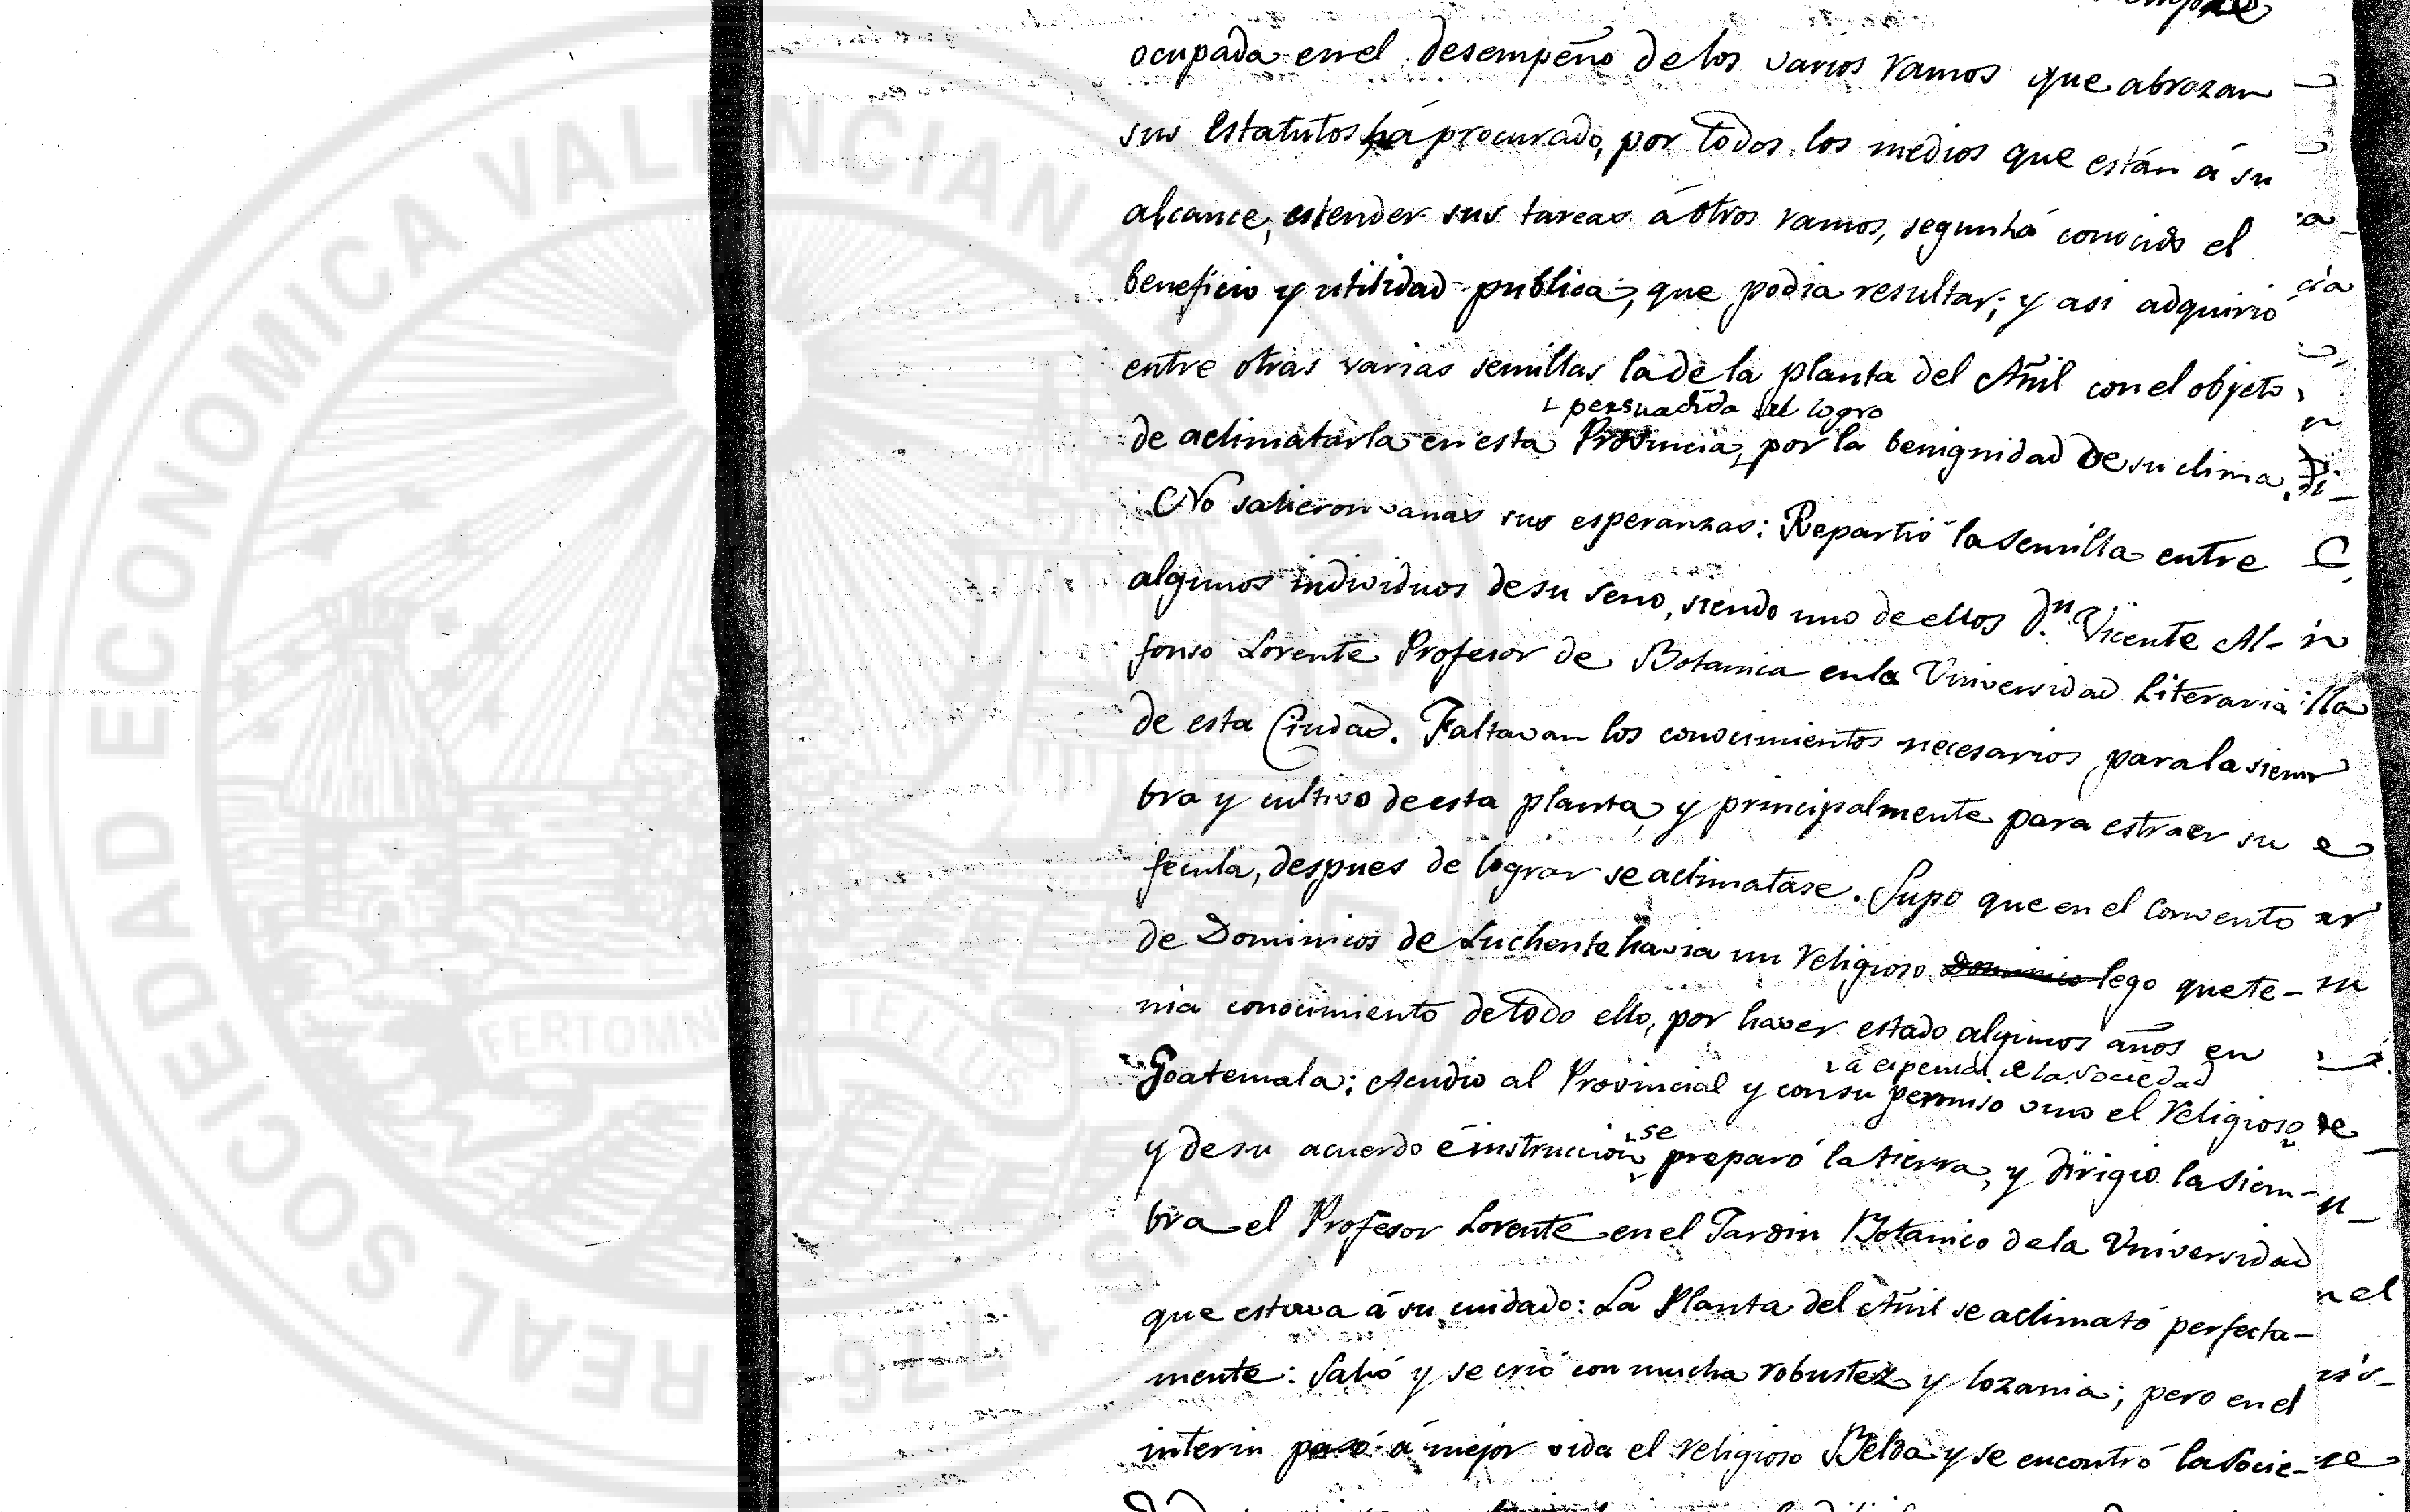 ocupada en el desempeño de los varios ramos que abrazan
sus Estatutos há procurado, por todos los medios que están á su
alcance, estender sus tareas á otros ramos, segun há conocido el
beneficio y utilidad publica, que podia resultar; y asi adquirió
entre otras varias semillas la de la planta del Añil con el objeto
persuadida del logro
de aclimatarla en esta Provincia, por la benignidad de su clima.
No salieron vanas sus esperanzas: Repartió la semilla entre
algunos individuos de su seno, siendo uno de ellos Dn. Vicente Al-
fonso Lorente Profesor de Botanica en la Universidad Literaria
de esta Ciudad. Faltavan los conocimientos necesarios para la siem
bra y cultivo de esta planta, y principalmente para estraer su
fecula, despues de lograr se aclimatase. Supo que en el Convento
de Dominicos de Luchente havia un Religioso Dominico lego que te-
nia conocimiento de todo ello, por haver estado algunos años en
á expensas de la Sociedad
Goatemala: Acudio al Provincial y con su permiso vino el Religioso
se
y de su acuerdo é instruccion preparó la tierra, y dirigio la siem-
bra el Profesor Lorente en el Jardin Botanico de la Universidad
que estava á su cuidado: La Planta del Añil se aclimató perfecta-
mente: Salió y se crió con mucha robustez y lozania; pero en el
interin pasó á mejor vida el Religioso Belda y se encontró la Socie-
REAL SOCIEDAD ECONOMICA VALENCIANA
1776